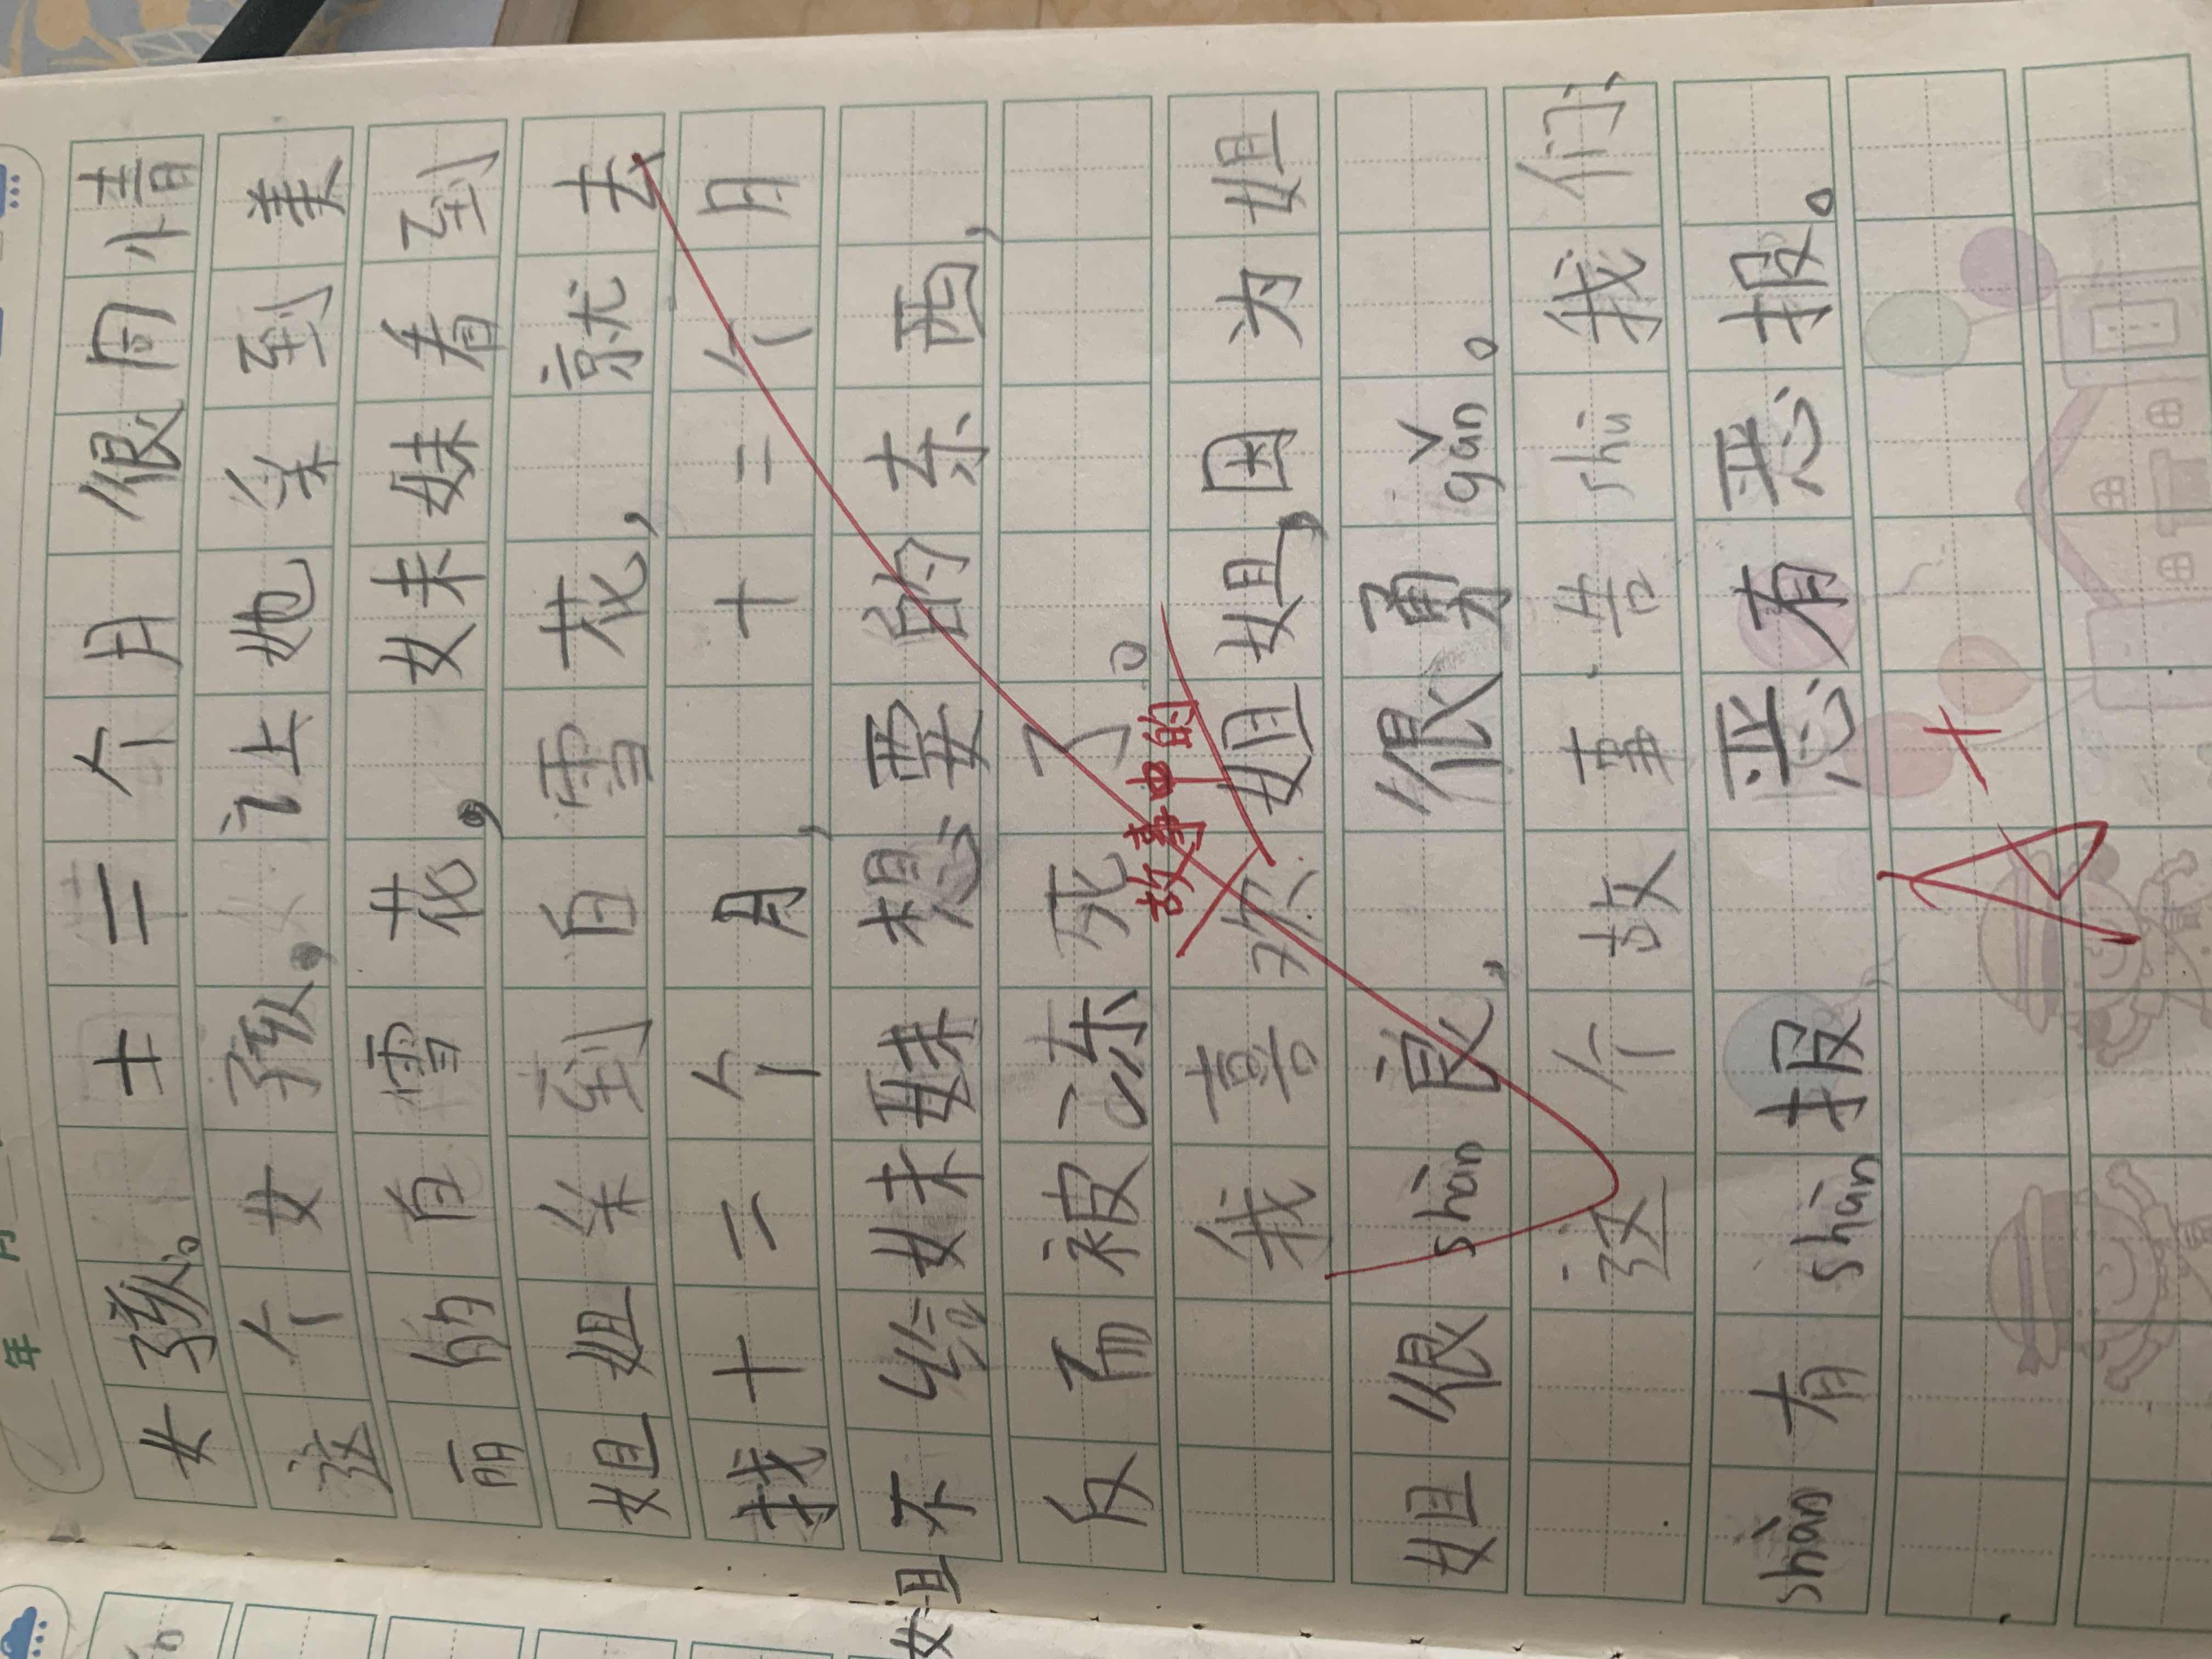 年 月
女孩。 十二个月很同情
这个女孩,让她采到美
丽的白雪花, 妹妹看到
姐姐采到白雪花,就去
找十二个月,十二个月
姐不给妹妹想要的东西,
反而被冻死了。
故事中的
我喜欢姐姐,因为姐
姐很shàn良,很勇gǎn。
这个故事告shù我们:
shàn有shàn报 恶有恶报。
A+